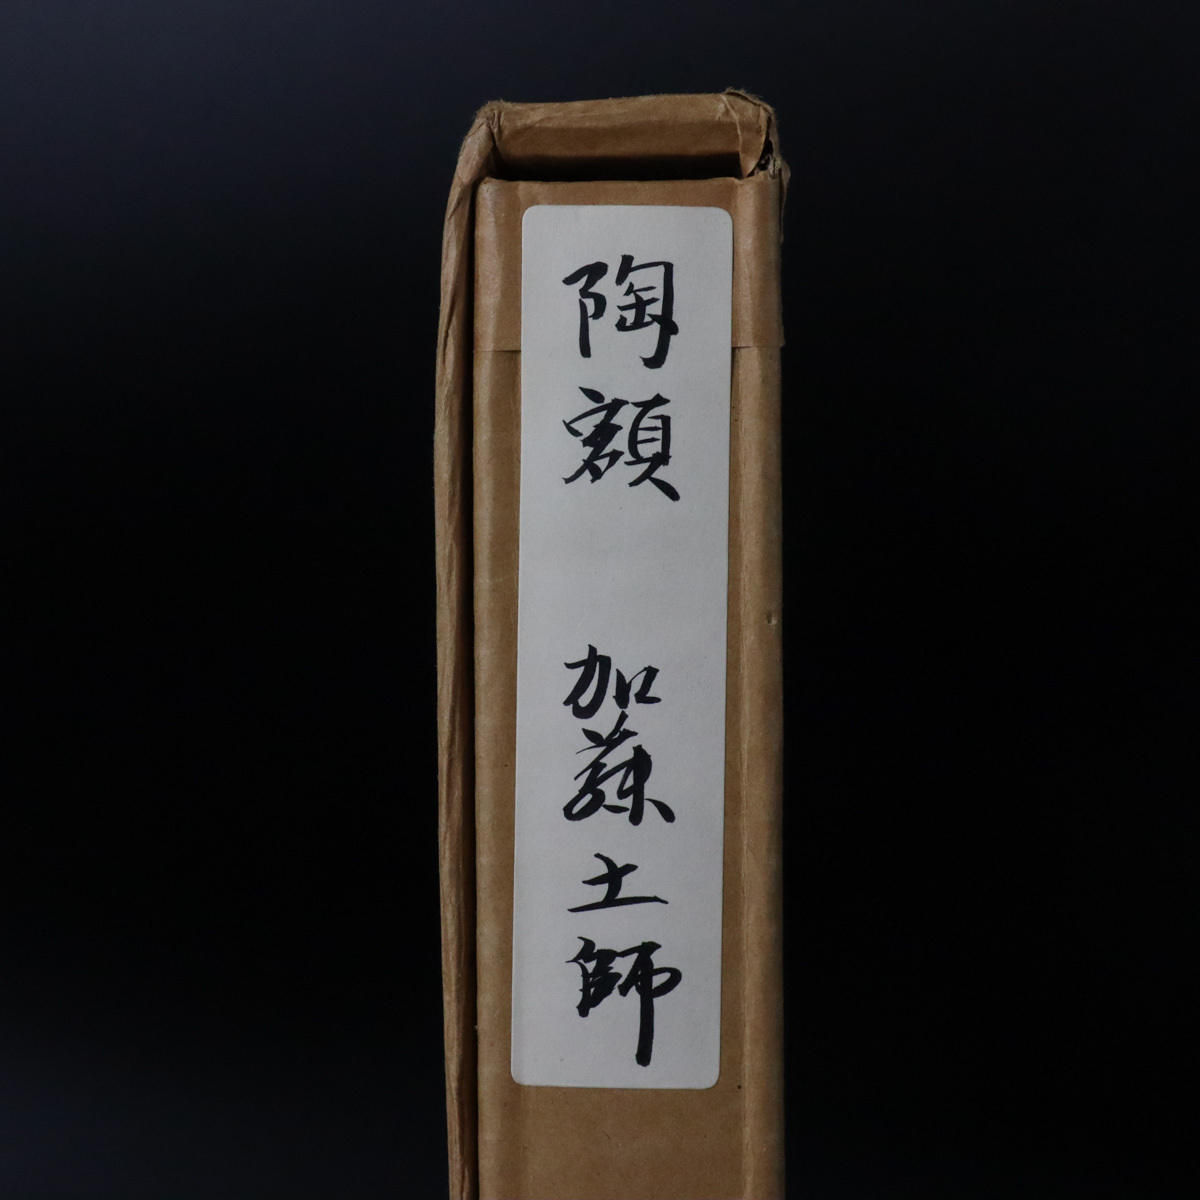 陶額　加藤土師